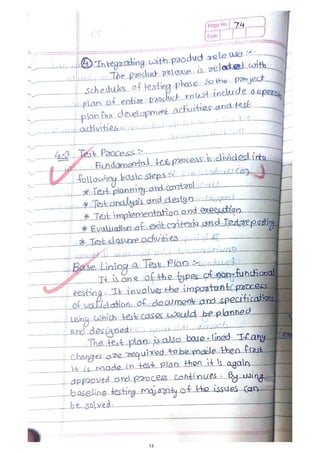 Page No. 74
Date
④ Integrating with product release :-
The product release is related with
schedules of testing phase so the project
plan of entire product must include seperate
plan for development activities and test
activities.
4.3 Test Process :-
Fundamental test process is divided into
following basic steps :-
* Test planning and control
* Test analysis and design
* Test implementation and execution
* Evaluation of exit criteria and Test reporting
* Test closure activities
Base Lining a Test Plan :-
It is one of the types of non-functional
testing. It involves the important process
of validation of document and specification
using which test cases would be planned
and designed.
The test plan is also base-lined If any
changes are required to be made then first
it is made in test plan then it is again
approved and process continues. By using
baseline testing majority of the issues can
be solved.